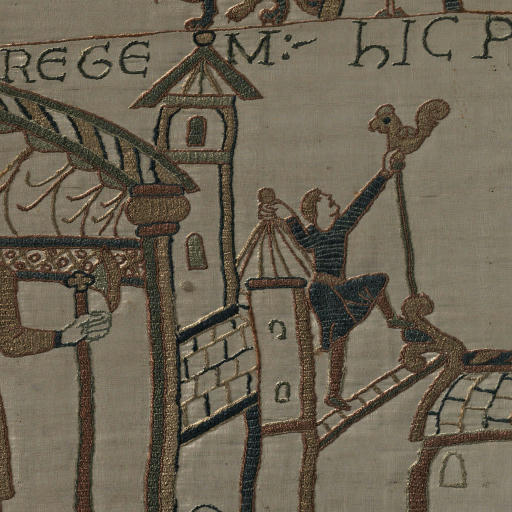 REGEM:~ hIC P